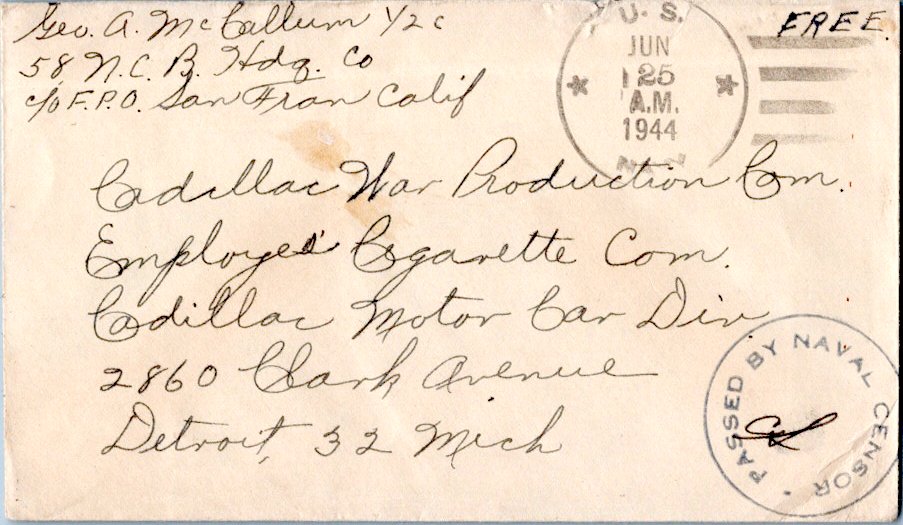 Geo. A. McCallum 1/2c
58 N.C. B. Hdq. Co
c/o F.P.O. San Fran Calif
U. S.
JUN
25
A.M.
1944
FREE.
Cadillac War Production Com.
Employees' Cigarette Com.
Cadillac Motor Car Div
2860 Clark Avenue
Detroit, 32 Mich
PASSED BY NAVAL CENSOR